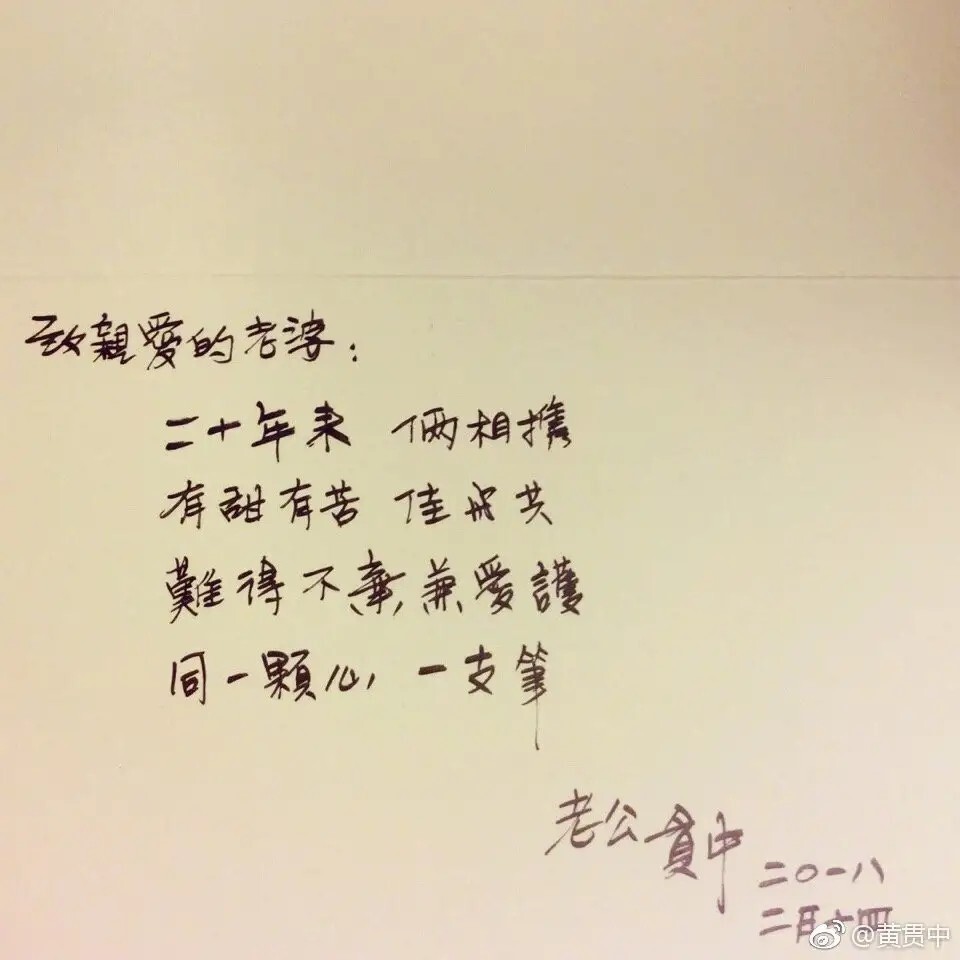 致親愛的老婆:
二十年来 倆相攜
有甜有苦 佳 共
難得不棄兼愛護
同一顆心 一支筆
老公貫中
二〇一八
二月十四
@黄贯中